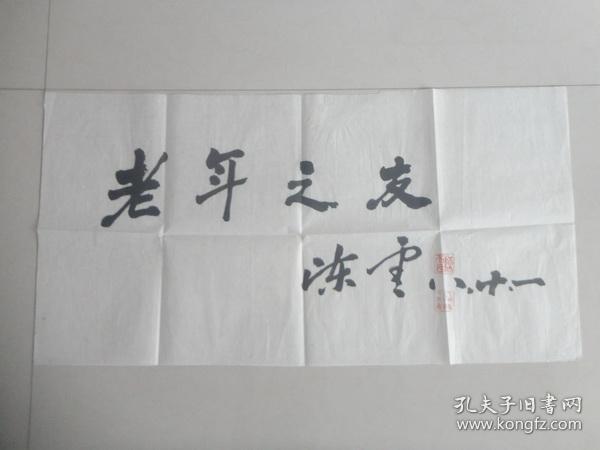 老年之友
陈云 八.廿.一
孔夫子旧书网
www.kongfz.com